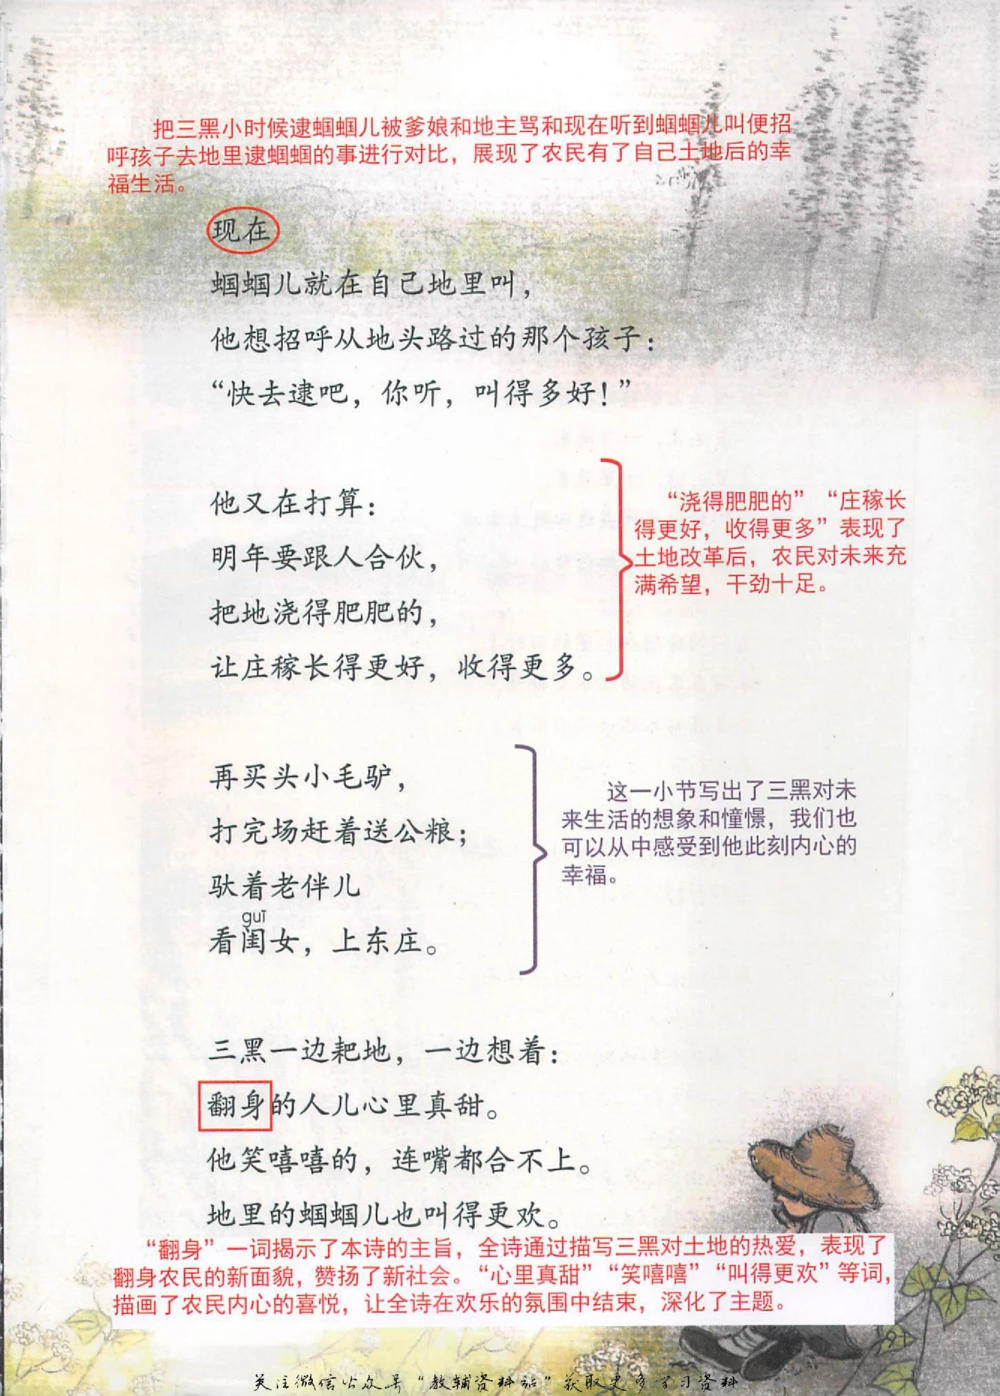 把三黑小时候逮蝈蝈儿被爹娘和地主骂和现在听到蝈蝈儿叫便招
呼孩子去地里逮蝈蝈的事进行对比，展现了农民有了自己土地后的幸
福生活。
现在
蝈蝈儿就在自己地里叫，
他想招呼从地头路过的那个孩子：
“快去逮吧，你听，叫得多好！”
他又在打算：
明年要跟人合伙，
把地浇得肥肥的，
让庄稼长得更好，收得更多。
“浇得肥肥的”“庄稼长
得更好，收得更多”表现了
土地改革后，农民对未来充
满希望，干劲十足。
再买头小毛驴，
打完场赶着送公粮；
驮着老伴儿
guī
看闺女，上东庄。
这一小节写出了三黑对未
来生活的想象和憧憬，我们也
可以从中感受到他此刻内心的
幸福。
三黑一边耙地，一边想着：
翻身的人儿心里真甜。
他笑嘻嘻的，连嘴都合不上。
地里的蝈蝈儿也叫得更欢。
“翻身”一词揭示了本诗的主旨，全诗通过描写三黑对土地的热爱，表现了
翻身农民的新面貌，赞扬了新社会。“心里真甜”“笑嘻嘻”“叫得更欢”等词，
描画了农民内心的喜悦，让全诗在欢乐的氛围中结束，深化了主题。
91
关注微信公众号“教辅资料站”获取更多学习资料